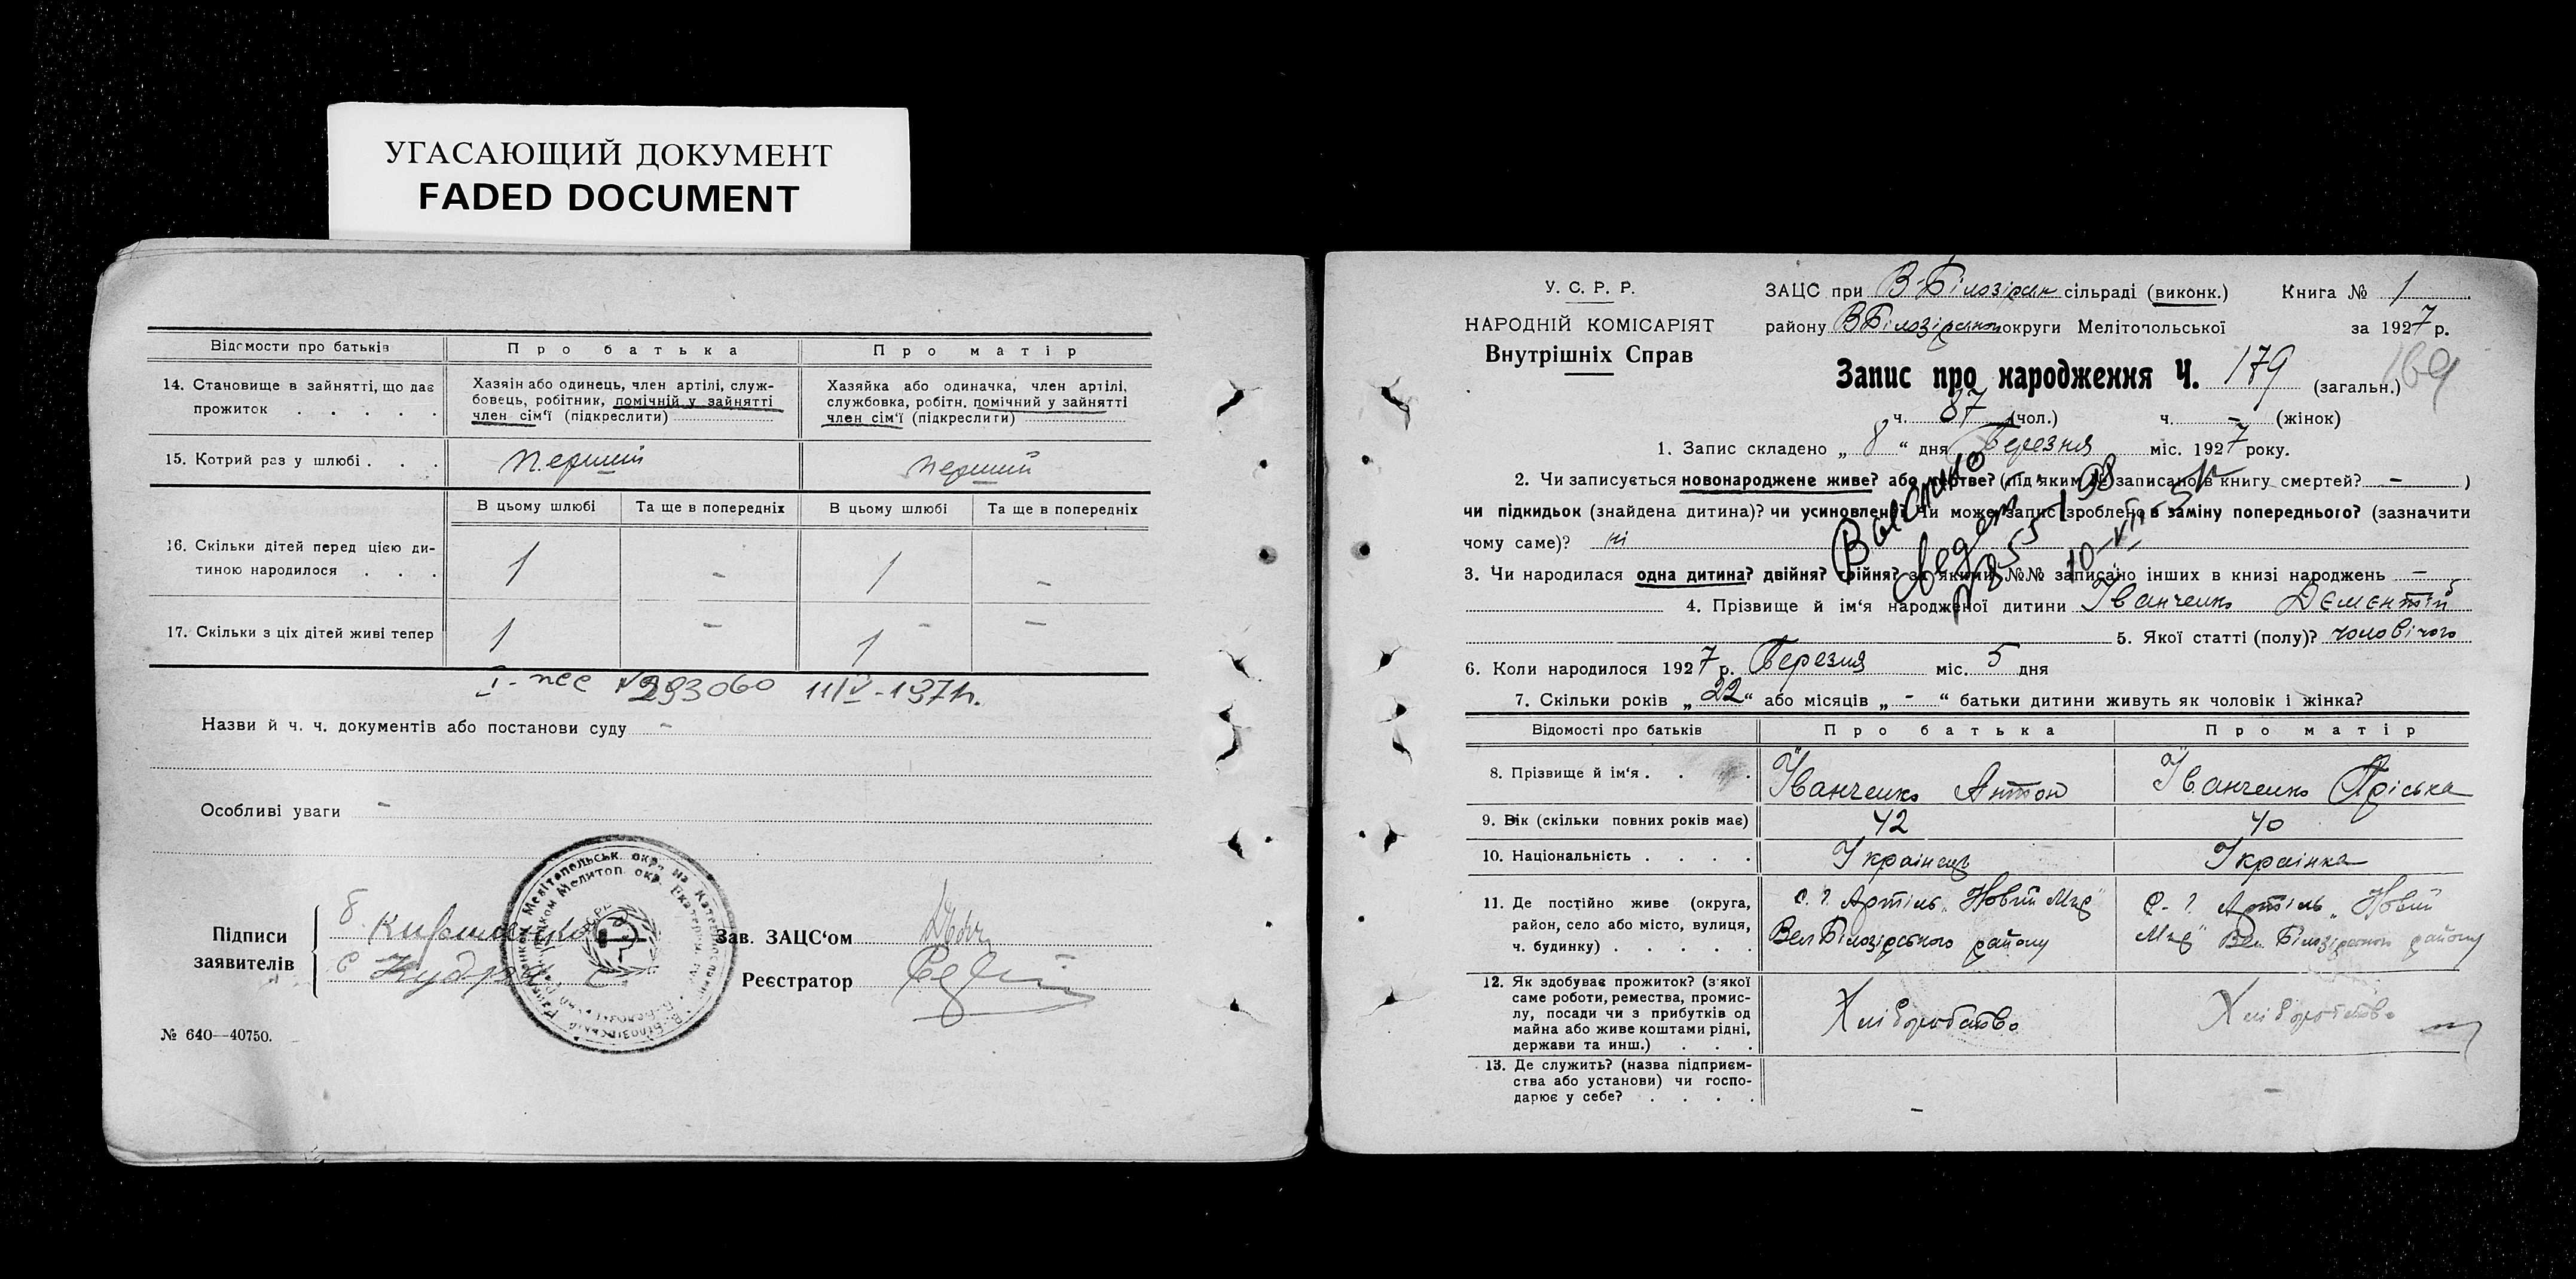 УГАСАЮЩИЙ ДОКУМЕНТ
FADED DOCUMENT
Відомости про батьків
Про батька
Про матір
14. Становище в зайнятті, що дає прожиток . . . . .
Хазяін або одинець, член артілі, служ-
бовець, робітник, помічній у зайнятті
член сім'ї (підкреслити)
Хазяйка або одиначка, член артілі,
службовка, робітн. помічний у зайнятті
член сім'ї (підкреслити)
15. Котрий раз у шлюбі . . .
перший
перший
В цьому шлюбі
Та ще в попередніх
В цьому шлюбі
Та ще в попередніх
16. Скільки дітей перед цією ди-
тиною народилося . . .
1
-
1
-
17. Скільки з ціх дітей живі тепер
1
-
1
-
№ 293060
Назви й ч. ч. документів або постанови суду -
Особливі уваги -
Підписи
заявителів
Кудря
Зав. ЗАЦС'ом
Реєстратор
№ 640—40750.
У. С. Р. Р.
НАРОДНІЙ КОМІСАРІЯТ
Внутрішніх Справ
ЗАЦС при В-Білозірськ сільраді (виконк.) Книга № 1
району В Білозірської округи Мелітопольської за 1927 р.
Запис про народження Ч. 179 (загальн.)
169
ч. 87 (чол.) ч. - (жінок)
1. Запис складено „ 8 “ дня Березня міс. 1927 року.
2. Чи записується новонароджене живе? або мертве? (під яким № записано в книгу смертей? - )
чи підкидьок (знайдена дитина)? чи усиновлене? Чи може запис зроблено в заміну попереднього? (зазначити
чому саме)? ні
3. Чи народилася одна дитина? двійня? трійня? за якими №№ записано інших в книзі народжень -
4. Прізвище й ім'я народженої дитини Іванченко Дементій
5. Якої статті (полу)? чоловічого
6. Коли народилося 1927 р. Березня міс. 5 дня
7. Скільки років „ 22 “ або місяців „ - “ батьки дитини живуть як чоловік і жінка?
Відомості про батьків
Про батька
Про матір
8. Прізвище й ім'я . . .
Іванченко Антон
Іванченко Пріська
9. Вік (скільки повних років має)
42
40
10. Національність . . . .
Украінець
Украінка
11. Де постійно живе (округа,
район, село або місто, вулиця,
ч. будинку) . . . . .
Артіль „Новий Мир“
Вел Білозірського району
Артіль „Новий
Мир“ Вел. Білозірського району
12. Як здобуває прожиток? (з'якої
саме роботи, ремества, промис-
лу, посади чи з прибутків од
майна або живе коштами рідні,
держави та инш.) . . .
Хліборобство
Хліборобство
13. Де служить? (назва підприєм-
ства або установи) чи госпо-
дарює у себе? . . . .
-
-